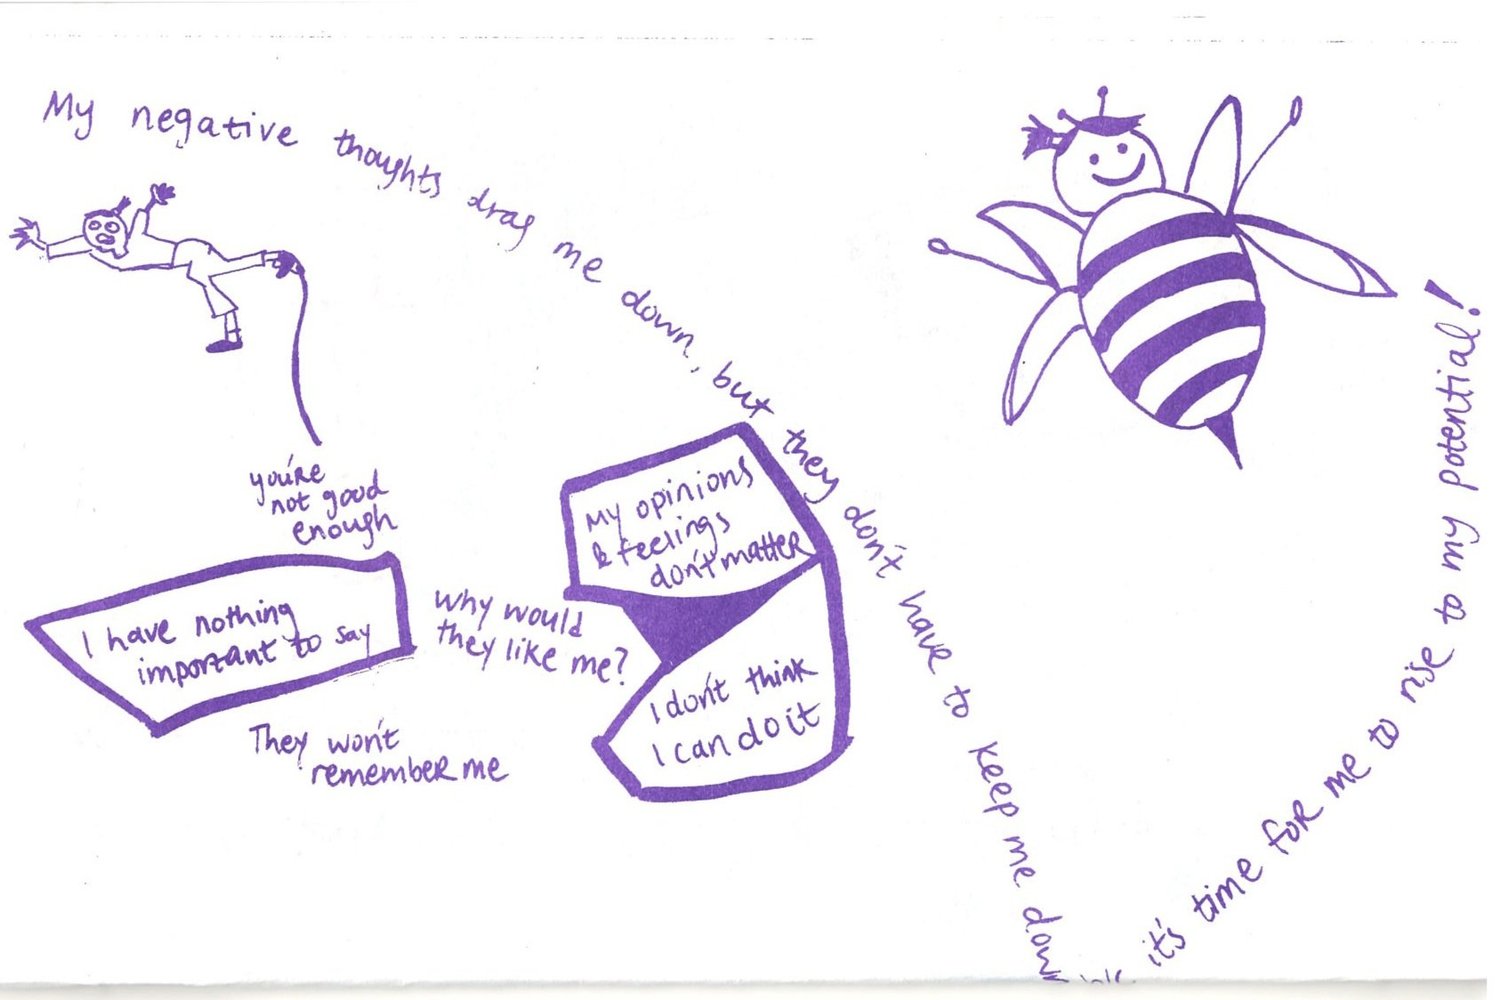 My negative thoughts drag me down, but they don't have to keep me down
it's time for me to rise to my potential!
you're
not good
enough
I have nothing
important to say
why would
they like me?
They won't
remember me
My opinions
& feelings
don't matter
I don't think
I can do it